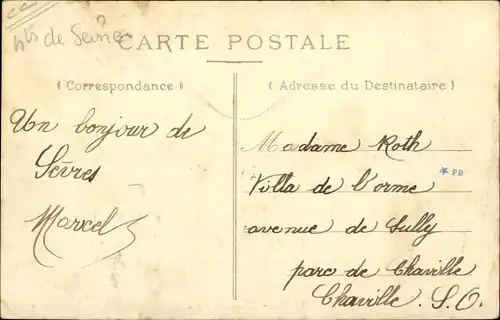 hts de Seine
CARTE POSTALE
( Correspondance )
( Adresse du Destinataire )
Un bonjour de
Sèvres
Marcel
Madame Roth
Villa de l'orme
avenue de Sully
parc de Chaville
Chaville. S. O.
* FB